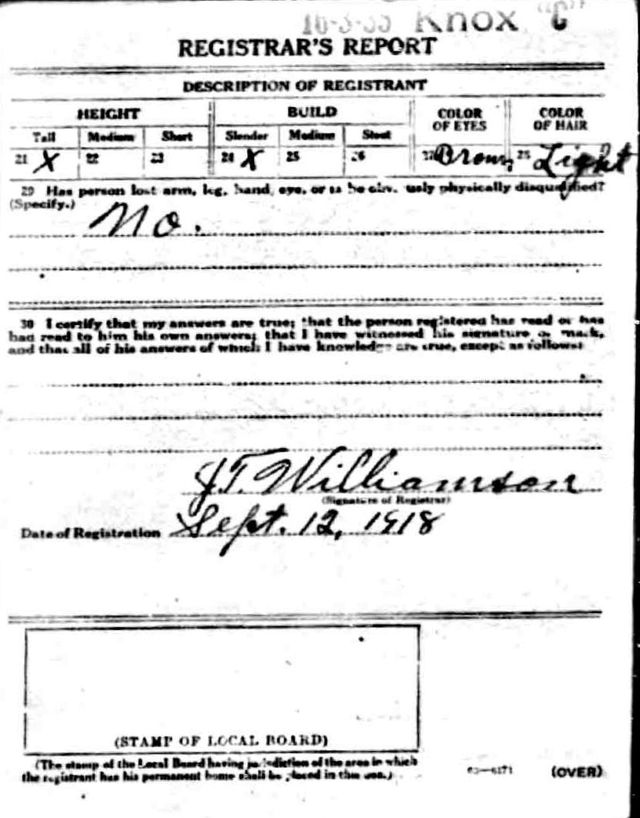 16-3-35 Knox "C"
REGISTRAR'S REPORT
DESCRIPTION OF REGISTRANT
HEIGHT BUILD COLOR OF EYES COLOR OF HAIR
Tall Medium Short Slender Medium Stout
21 X 22 23 24 X 25 26 27 Brown 28 Light
29 Has person lost arm, leg, hand, eye, or is he obviously physically disqualified?
(Specify.) No.
30 I certify that my answers are true; that the person registered has read or has
had read to him his own answers; that I have witnessed his signature or mark,
and that all of his answers of which I have knowledge are true, except as follows:
J.T. Williamson
(Signature of Registrar)
Date of Registration Sept. 12, 1918
(STAMP OF LOCAL BOARD)
(The stamp of the Local Board having jurisdiction of the area in which
the registrant has his permanent home shall be placed in this box.)
03—6171 (OVER)